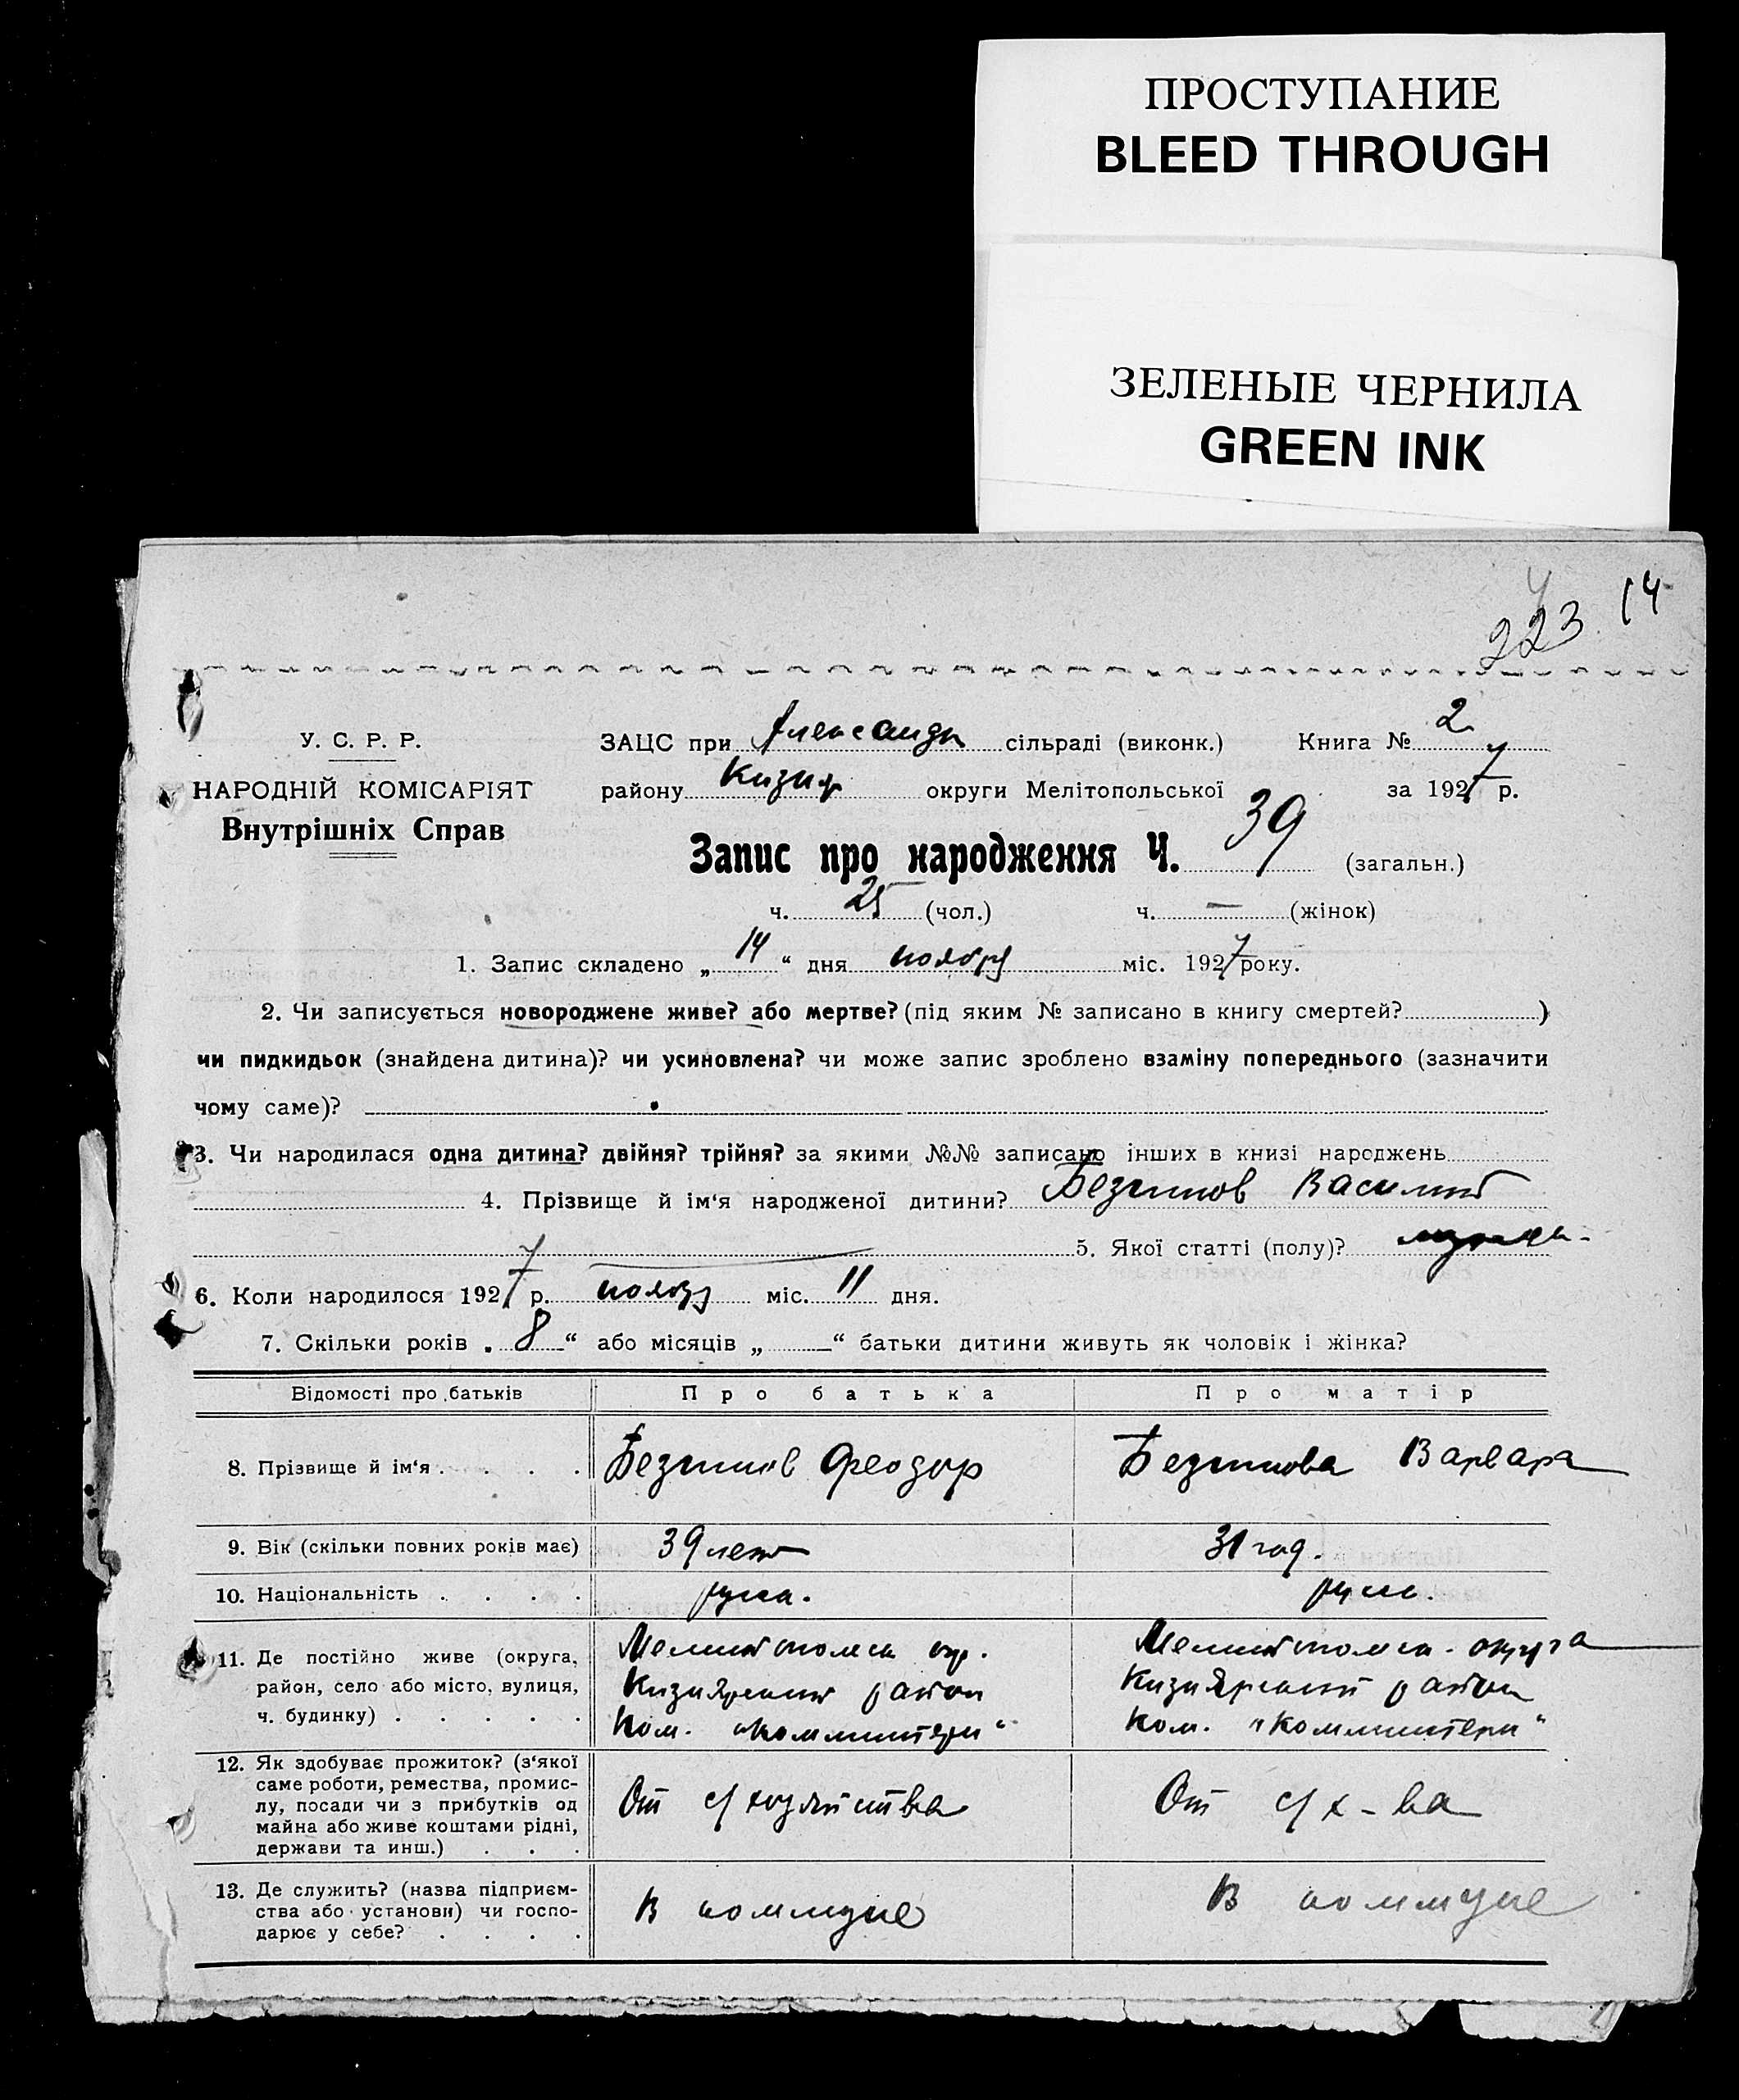 ПРОСТУПАНИЕ
BLEED THROUGH
ЗЕЛЕНЫЕ ЧЕРНИЛА
GREEN INK
14
223
У. С. Р. Р.
НАРОДНІЙ КОМІСАРІЯТ
Внутрішніх Справ
ЗАЦС при Александр сільраді (виконк.) Книга № 2
району Кизияр округи Мелітопольської за 1927 р.
Запис про народження Ч. 39 (загальн.)
ч. 25 (чол.) ч. — (жінок)
1. Запис складено „ 14 “ дня ноября міс. 1927 року.
2. Чи записується новороджене живе? або мертве? (під яким № записано в книгу смертей? )
чи пидкидьок (знайдена дитина)? чи усиновлена? чи може запис зроблено взаміну попереднього (зазначити
чому саме)?
3. Чи народилася одна дитина? двійня? трійня? за якими №№ записано інших в книзі народжень
4. Прізвище й ім‘я народженої дитини? Василий
5. Якої статті (полу)?
6. Коли народилося 1927 р. ноября міс. 11 дня.
7. Скільки років „ 8 “ або місяців „ — “ батьки дитини живуть як чоловік і жінка?
Відомості про батьків Про батька Про матір
8. Прізвище й ім‘я . . . . Феодор Варвара
9. Вік (скільки повних років має) 39 лет 31 год.
10. Національність . . . . русск. русск.
11. Де постійно живе (округа,
район, село або місто, вулиця,
ч. будинку) . . . . .
Мелитопольск окр.
Кизиярский район
Ком. "Коминтерн"
Мелитопольск. округа
Кизиярский район
Ком. "Коминтерн"
12. Як здобуває прожиток? (з‘якої
саме роботи, ремества, промис-
лу, посади чи з прибутків од
майна або живе коштами рідні,
держави та инш.) . . .
От с/хозяйства
От с/х-ва
13. Де служить? (назва підприєм-
ства або установи) чи госпо-
дарює у себе? . . . .
В коммуне
В коммуне